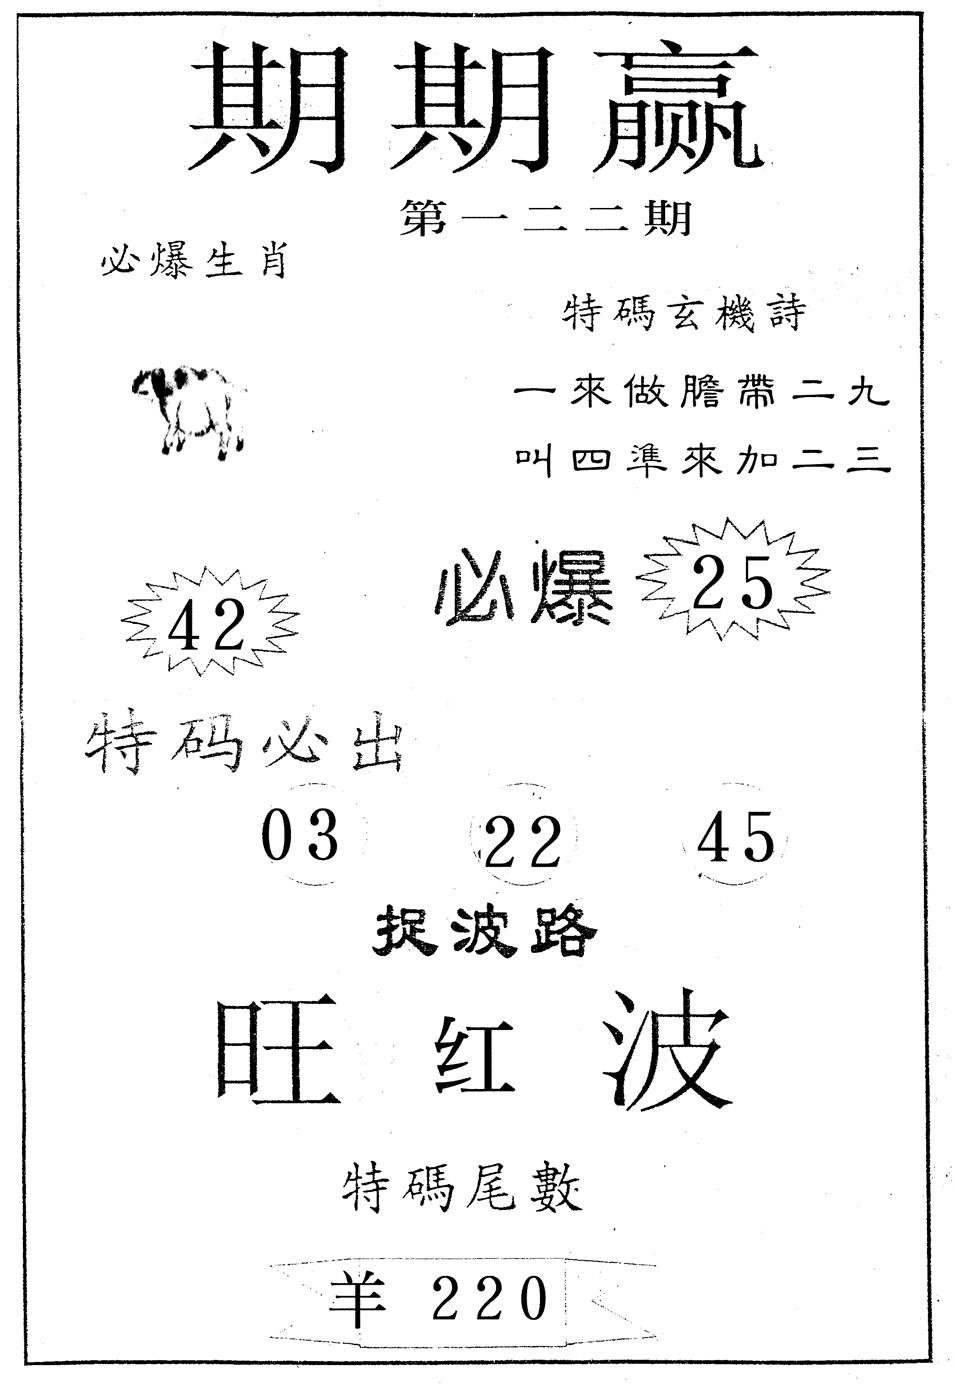 期期赢
第一二二期
必爆生肖
特碼玄機詩
一來做膽帶二九
叫四準來加二三
必爆 25
42
特码必出
03 22 45
捉波路
旺红波
特碼尾數
羊 220